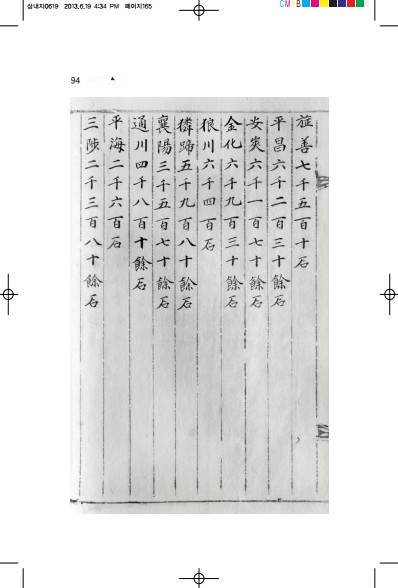 삼내지0619 2013.6.19 4:34 PM 페이지165
CM B
94
旌善七千五百十石
平昌六千二百三十餘石
安峽六千一百七十餘石
金化六千九百三十餘石
狼川六千四百石
獜蹄五千九百八十餘石
襄陽三千五百七十餘石
通川四千八百十餘石
平海二千六百石
三陟二千三百八十餘石